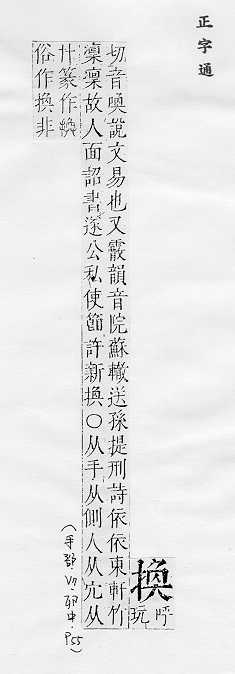 正字通
換 呼玩
切音喚說文易也又霰韻音院蘇轍送孫提刑詩依依東軒竹
凜凜故人面詔書遂公私使節許新換〇从手从側人从穴从
廾篆作
俗作換非
(手部·VI·卯中·P55)